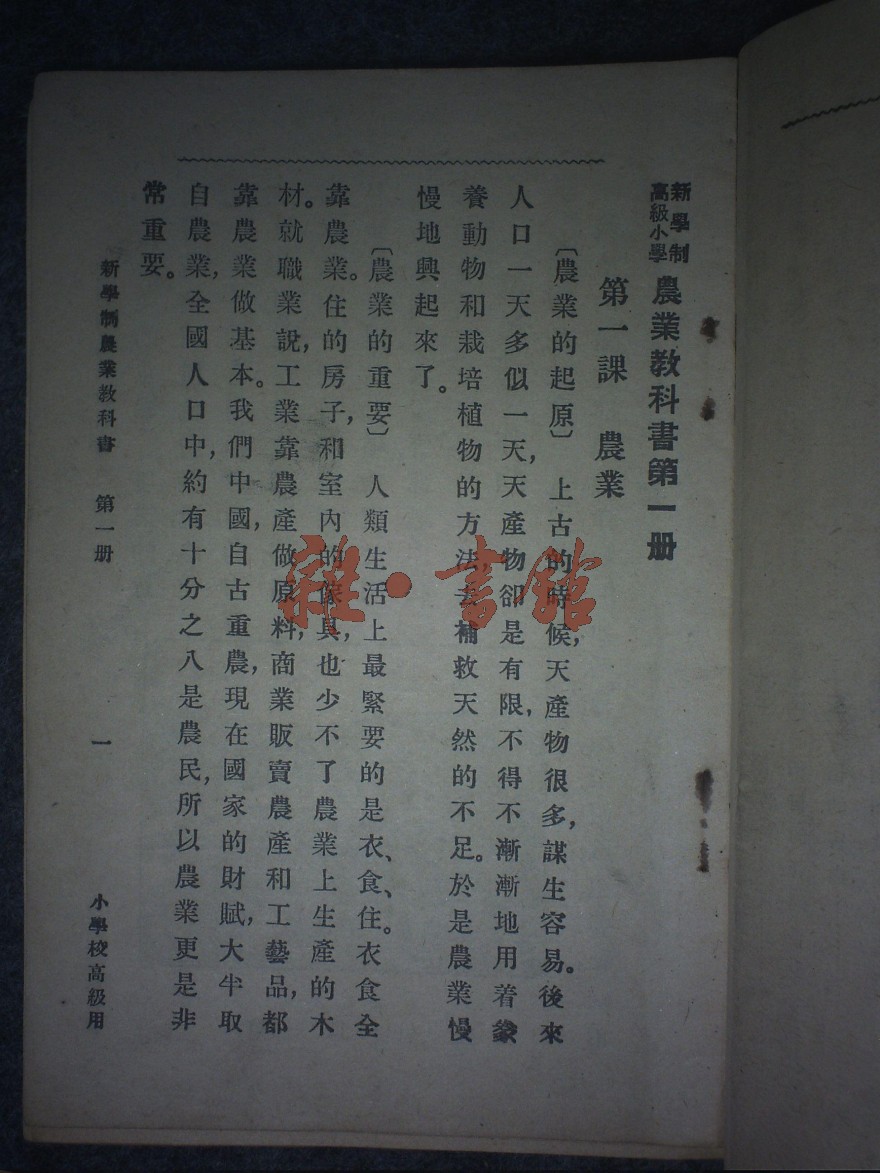 新學制
高級小學
農業教科書第一册
第一課 農業
〔農業的起原〕 上古的時候，天產物很多，謀生容易。後來
人口一天多似一天，天產物卻是有限，不得不漸漸地用着豢
養動物和栽培植物的方法，去補救天然的不足。於是農業慢
慢地興起來了。
〔農業的重要〕 人類生活上最緊要的是衣、食、住。衣食全
靠農業。住的房子，和室內的傢具，也少不了農業上生產的木
材。就職業說，工業靠農產做原料，商業販賣農產和工藝品，都
靠農業做基本。我們中國，自古重農，現在國家的財賦，大半取
自農業，全國人口中，約有十分之八是農民，所以農業更是非
常重要。
新學制農業教科書 第一册 一 小學校高級用
雜·書館